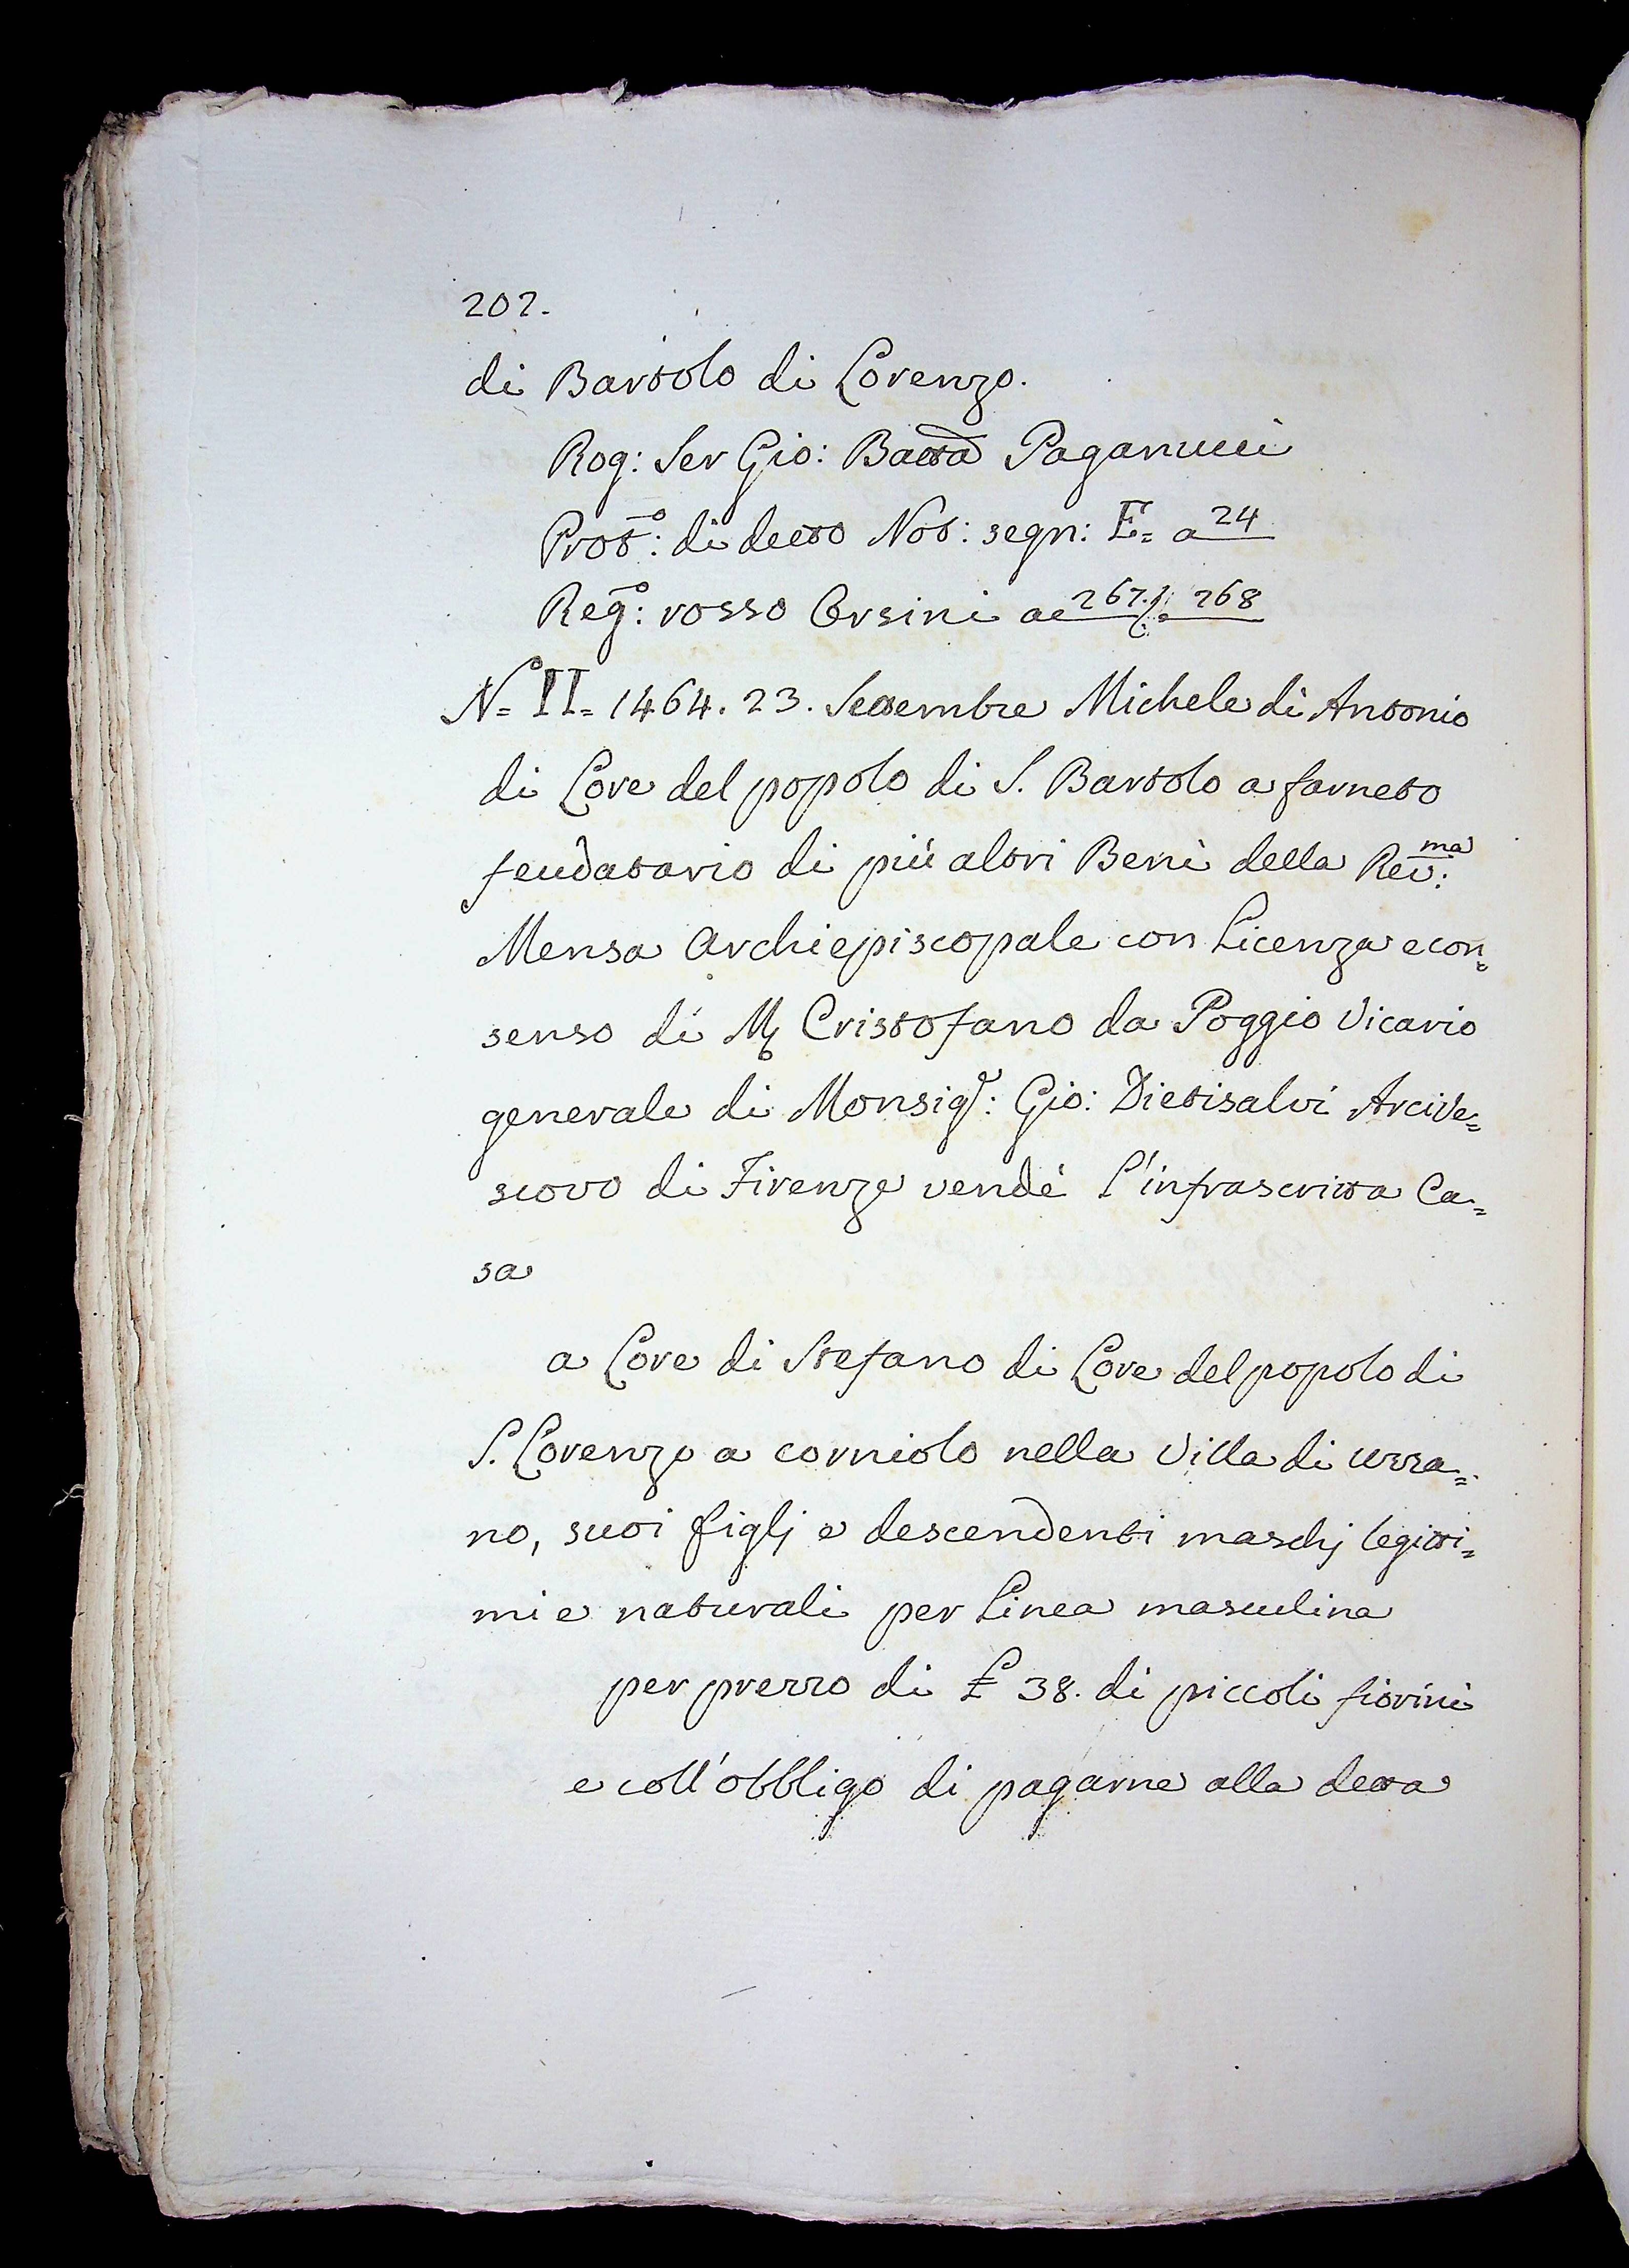 202.
di Bartolo di Lorenzo.
Rog: Ser Gio: Batta Paganucci
Prot:º di detto Not: segn: E= a 24
Reg:º rosso Orsini ac 267. /. 268
Nº= II= 1464. 23. Settembre Michele di Antonio
di Lore del popolo di S. Bartolo a farneto
feudatario di più altri Beni della Rev:ma
Mensa Archiepiscopale con Licenza e con=
senso di M. Cristofano da Poggio Vicario
generale di Monsigr: Gio: Dietisalvi Arcive=
scovo di Firenze vendé l'infrascritta Ca=
sa
a Lore di Stefano di Lore del popolo di
S. Lorenzo a corniolo nella Villa di Uzza=
no, suoi figlj e descendenti maschj legitti=
mi e naturali per Linea masculina
per prezzo di £ 38. di piccoli fiorini
e coll'obbligo di pagarne alla detta